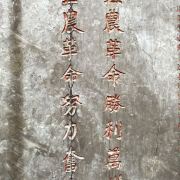 農革命勝利萬
農革命努力奮